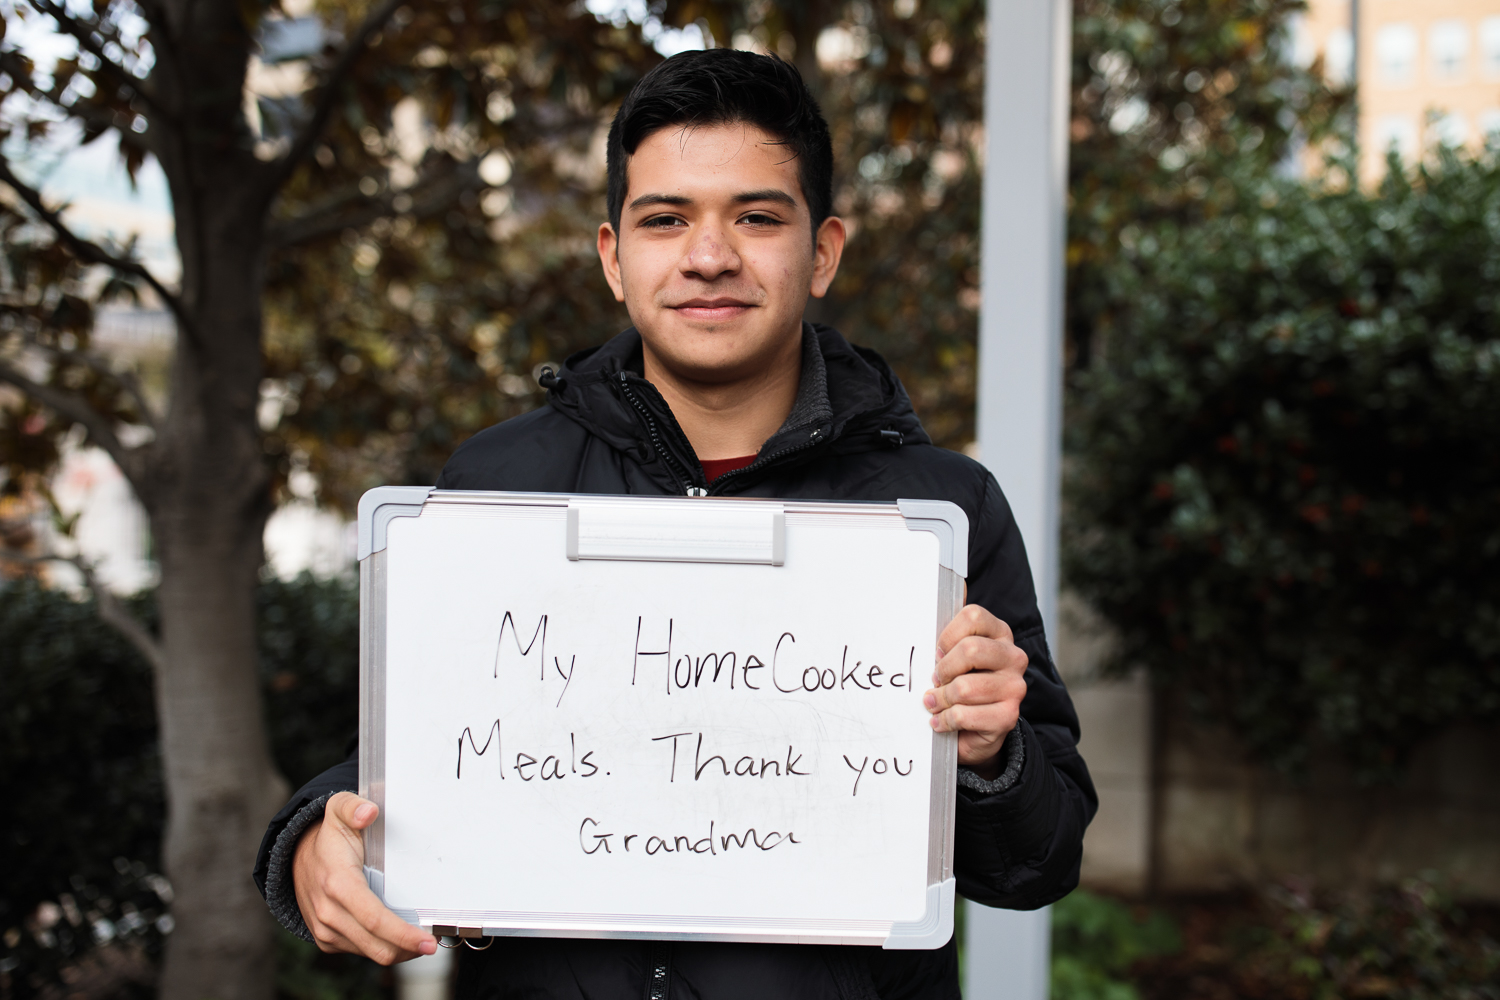 My HomeCooked
Meals. Thank you
Grandma